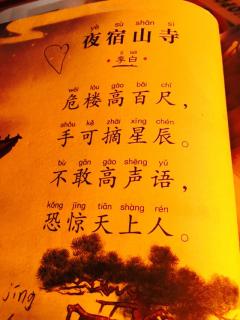 yè sù shān sì
夜宿山寺
lǐ bái
·李白·
wēi lóu gāo bǎi chǐ
危楼高百尺，
shǒu kě zhāi xīng chén
手可摘星辰。
bù gǎn gāo shēng yǔ
不敢高声语，
kǒng jīng tiān shàng rén
恐惊天上人。
jīng